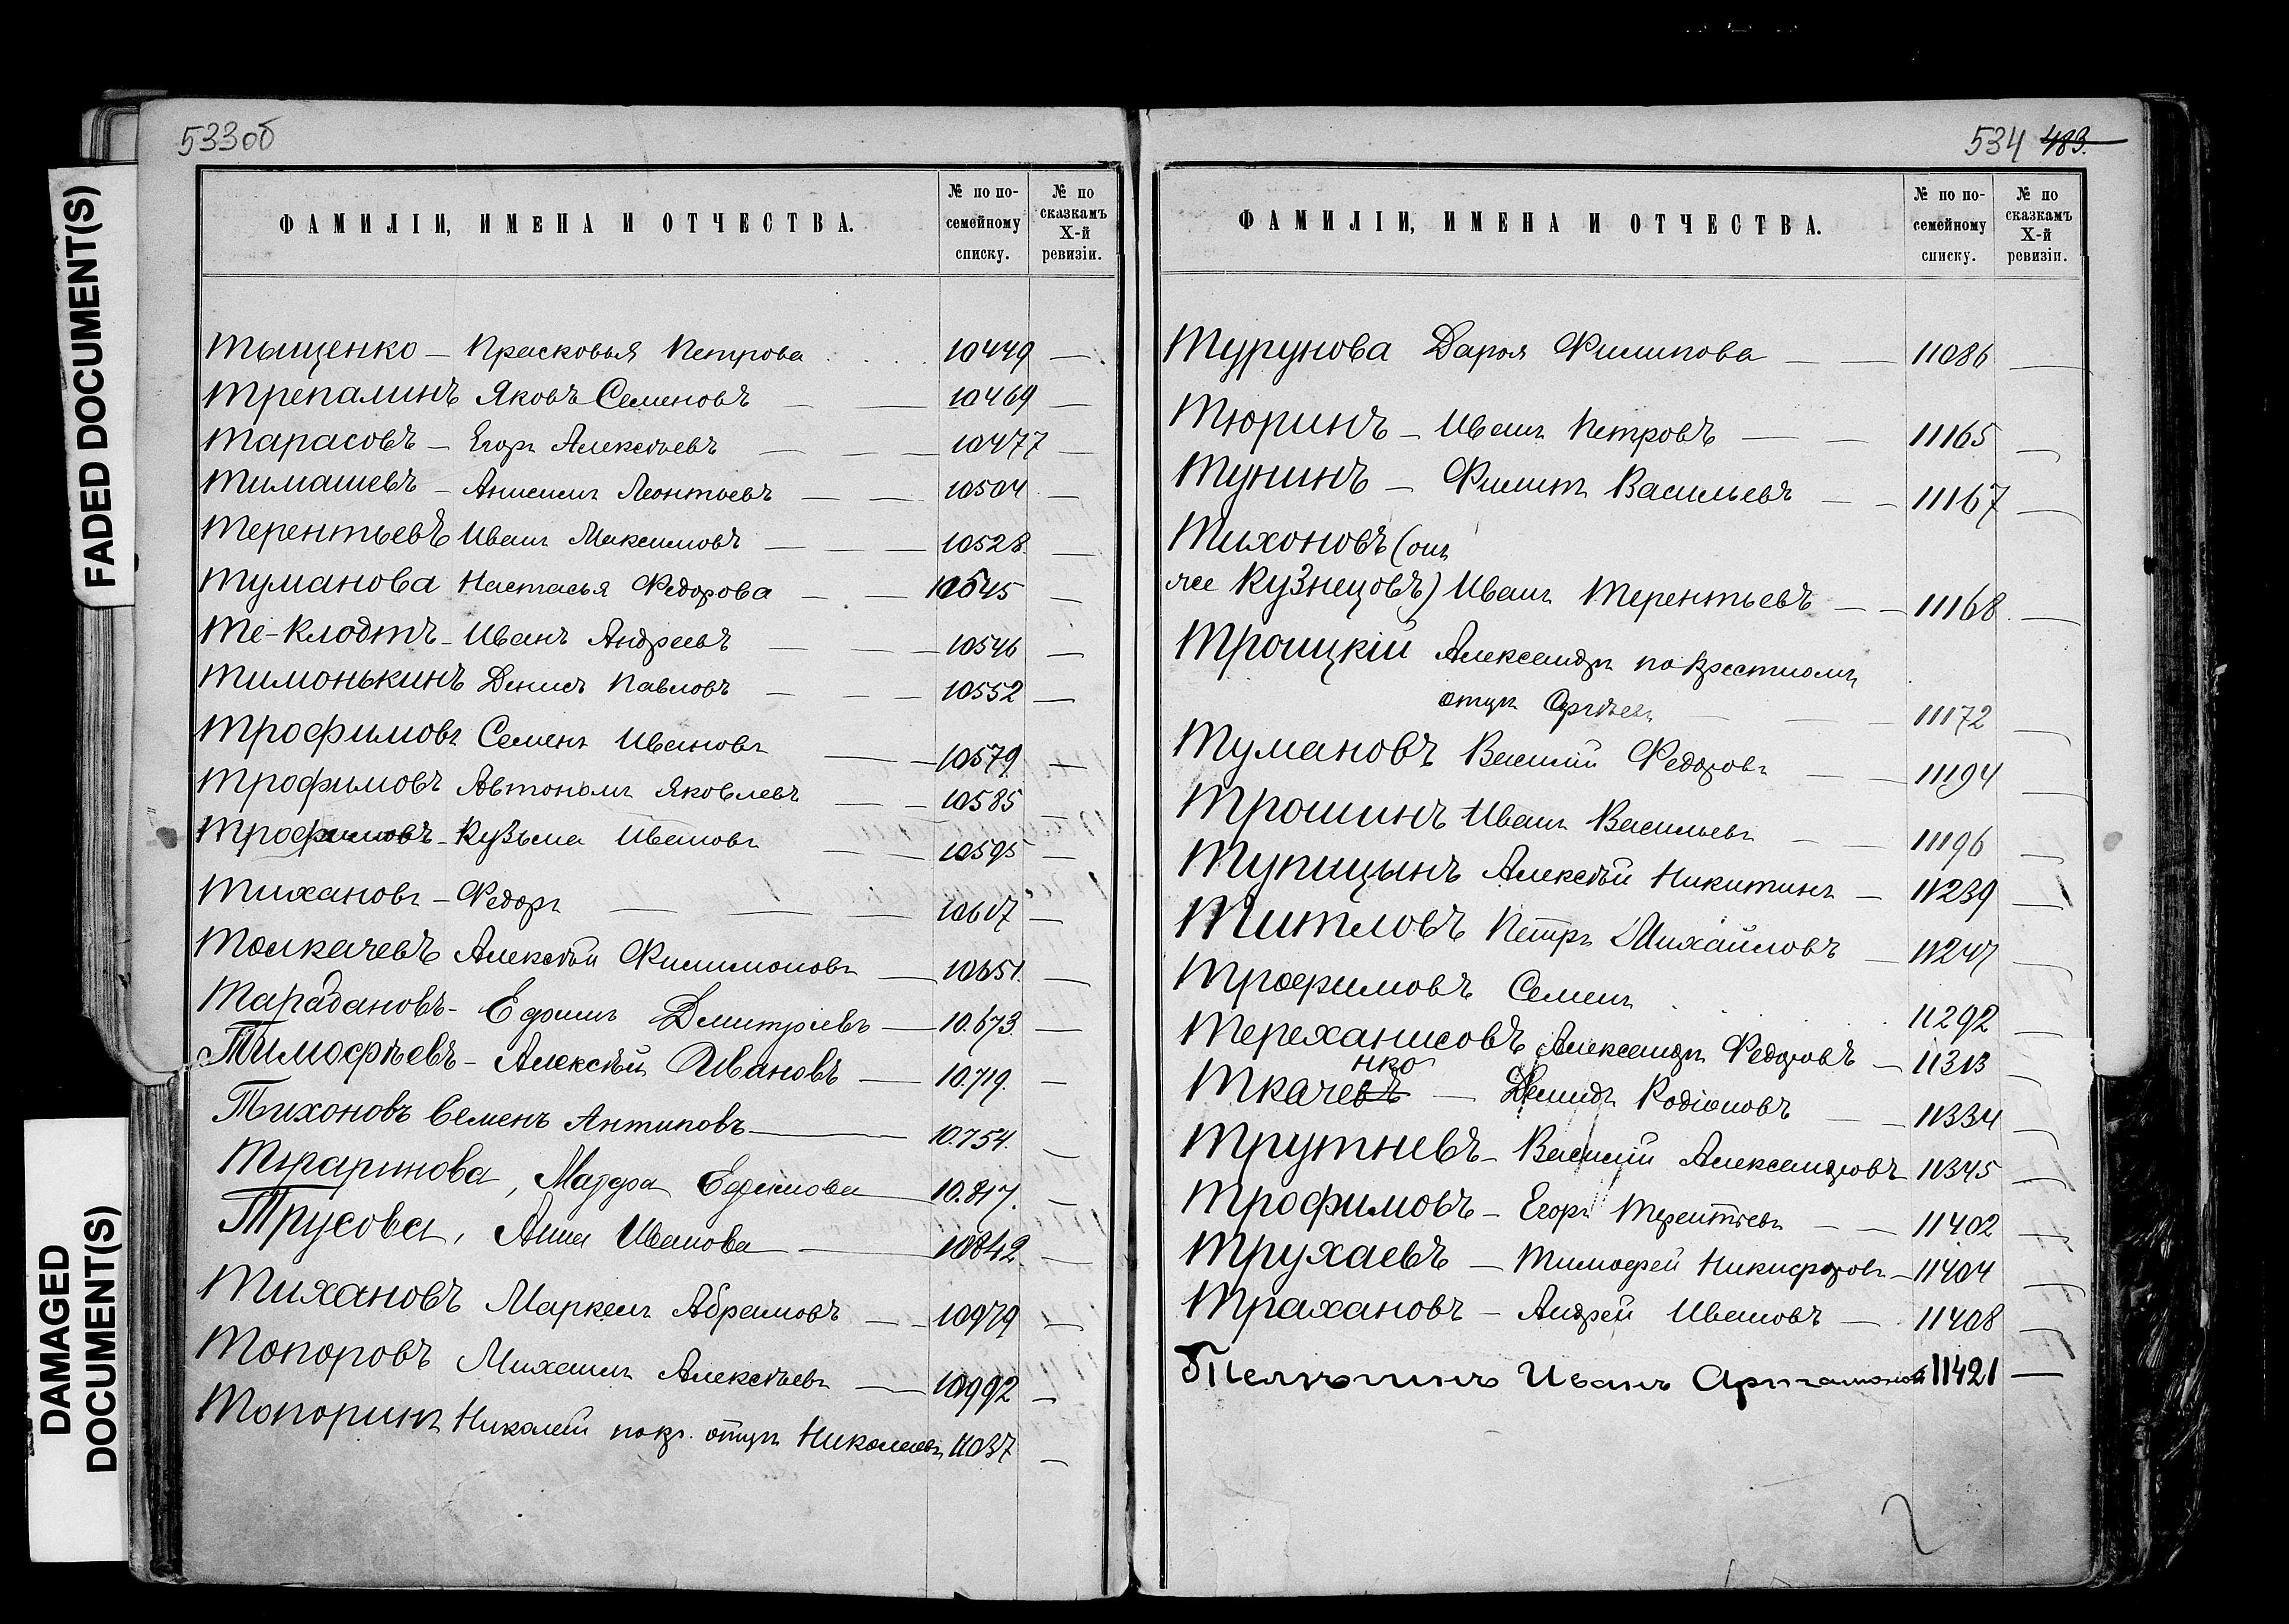 533об
ФАМИЛІИ, ИМЕНА И ОТЧЕСТВА.
№ по по-
семейному
списку.
№ по
сказкамъ
X-й
ревизіи.
Тыщенко — Прасковья Петрова 10449 —
Трепалинъ Яковъ Семеновъ — — 10469 —
Тарасовъ — Егоръ Алексѣевъ — — — 10477 —
Тимашевъ — Анисимъ Леонтьевъ — — 10504 —
Терентьевъ Иванъ Максимовъ — — — 10528 —
Туманова Настасья Федорова — — 10545 —
Те-Клодтъ — Иванъ Андреевъ — — — 10546 —
Тимонькинъ Денисъ Павловъ — — — 10552 —
Трофимовъ Семенъ Ивановъ — — 10579 —
Трофимовъ Автономъ Яковлевъ — — 10585 —
Трофимовъ — Кузьма Ивановъ — — 10595 —
Тихановъ — Федоръ — — — 10617 —
Толкачевъ Алексѣй Филимоновъ — 10651 —
Тарадановъ — Ефимъ Дмитріевъ — 10.673. —
Тимофѣевъ — Алексѣй Ивановъ — 10.719. —
Тихоновъ Семенъ Антиповъ — 10.754. —
Марфа Ефимова — 10.817. —
Трусова, Анна Иванова — 10842 —
Тихановъ Маркелъ Абрамовъ — — 10979 —
Топоровъ Михаилъ Алексѣевъ — 10992 —
Топоринъ Николай по кр. отцу Николаевъ 11037 —
534 483.
ФАМИЛІИ, ИМЕНА И ОТЧЕСТВА.
№ по по-
семейному
списку.
№ по
сказкамъ
X-й
ревизіи.
Турунова Дарья Филипова — — 11086 —
Тюринъ — Иванъ Петровъ — — 11165 —
Тунинъ — Филипъ Васильевъ — — 11167 —
Тихоновъ (онъ
же Кузнецовъ) Иванъ Терентьевъ — — 11168 —
Троицкій Александръ по крестному
отцу Сергѣевъ — — — 11172 —
Тумановъ Василій Федоровъ — — 11194 —
Трошинъ Иванъ Васильевъ — — 11196 —
Тупицынъ Алексѣй Никитинъ — 11239 —
Титловъ Петръ Михайловъ — 11247 —
Трофимовъ Семенъ 11292 —
Тереханисовъ Александръ Федоровъ — 11313 —
нко
Ткачевъ — Демидъ Родіоновъ — — 11334 —
Трутневъ — Василій Александровъ 11345 —
Трофимовъ — Егоръ Терентьевъ — — 11402 —
Трухаевъ — Тимофей Никифоровъ — 11404 —
Трахановъ — Андрей Ивановъ — 11408 —
Иванъ Артамоновъ 11421 —
FADED DOCUMENT(S)
DAMAGED
DOCUMENT(S)